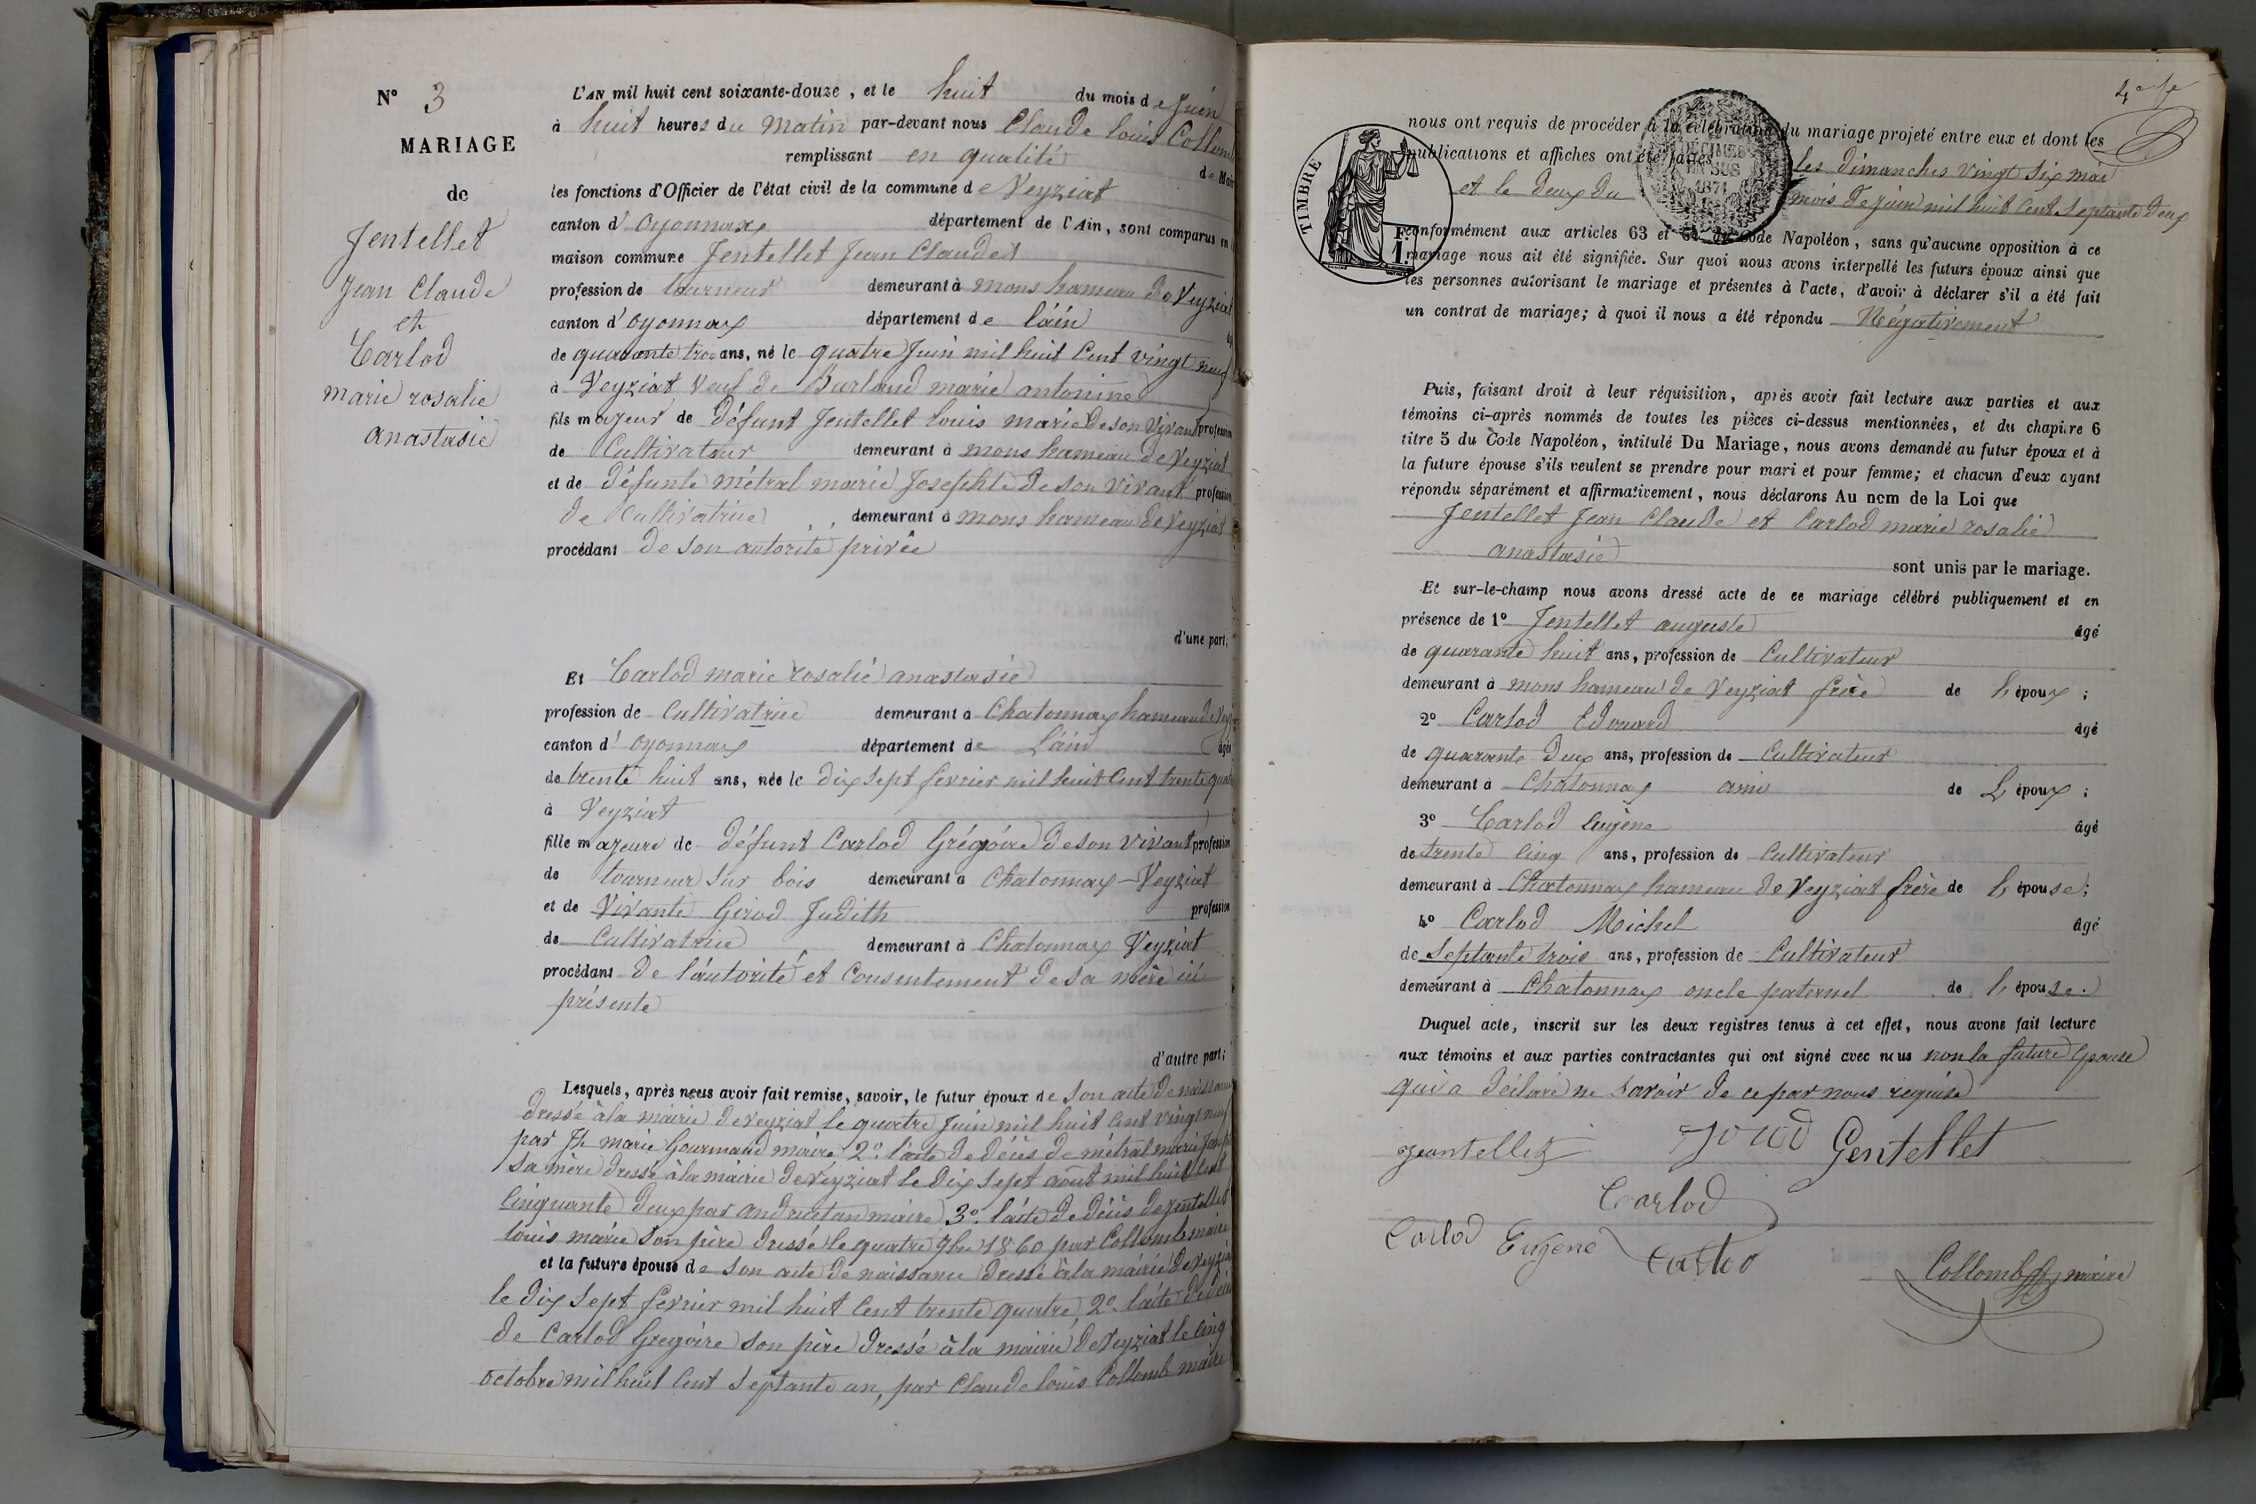 N° 3
MARIAGE
de
Jentellet
Jean Claude
et
Carlod
marie rosalie
anastasie
L'AN mil huit cent soixante-douze, et le huit du mois de Juin
à huit heures du Matin par-devant nous Claude louis Collomb
remplissant en qualité de Maire
les fonctions d'Officier de l'état civil de la commune de Veyziat
canton d'oyonnax département de l'Ain, sont comparus en
maison commune Jentellet Jean Claude
profession de tourneur demeurant à mons hameau de Veyziat
canton d'oyonnax département de l'ain
de quarante trois ans, né le quatre Juin mil huit Cent vingt neuf
à Veyziat Veuf de Burlaud marie antonine
fils majeur de Défunt Jentellet louis marie De son Vivant profession
de Cultivateur demeurant à mons hameau de Veyziat
et de défunte métral marie Josephte De son Vivant profession
de Cultivatrice demeurant à mons hameau de Veyziat
procédant de son autorité privée
d'une part;
Et Carlod marie rosalie anastasie
profession de Cultivatrice demeurant à Chatonnax hameau de Vey
canton d'oyonnax département de L'ain âgée
de trente huit ans, née le dix sept fevrier mil huit Cent trente quatre
à Veyziat
fille majeure de défunt Carlod Grégoire De son vivant profession
de tourneur sur bois demeurant à Chatonnax-Veyziat
et de Vivante Girod Judith profession
de Cultivatrice demeurant à Chatonnax Veyziat
procédant de l'autorité et Consentement de sa mère ici
présente
d'autre part;
Lesquels, après nous avoir fait remise, savoir, le futur époux de son acte de naissance
dressé à la mairie de veyziat le quatre Juin mil huit Cent vingt neuf
par Jh marie Gourmand maire 2° l'acte de décès de métral marie
sa mère dressé à la mairie de Veyziat le dix sept août mil huit Cent
Cinquante deux par maire 3° l'acte de décès de Jentellet
louis marie son père dressé le quatre 9bre 1860 par Collomb maire
et la future épouse de son acte de naissance dressé à la mairie de Veyziat
le dix sept fevrier mil huit Cent trente quatre, 2° l'acte de décès
de Carlod Gregoire son père dressé à la mairie de Veyziat le cinq
octobre mil huit Cent Septante un, par Claude louis Collomb maire
nous ont requis de procéder à la célébration du mariage projeté entre eux et dont les
publications et affiches ont été faites les dimanches vingt six mai
et le deux du mois de juin mil huit Cent Septante deux
TIMBRE
DÉCIMES
EN SUS
1871
F.
1.
conformément aux articles 63 et 64 du Code Napoléon, sans qu'aucune opposition à ce
mariage nous ait été signifiée. Sur quoi nous avons interpellé les futurs époux ainsi que
les personnes autorisant le mariage et présentes à l'acte, d'avoir à déclarer s'il a été fait
un contrat de mariage; à quoi il nous a été répondu Négativement
Puis, faisant droit à leur réquisition, après avoir fait lecture aux parties et aux
témoins ci-après nommés de toutes les pièces ci-dessus mentionnées, et du chapitre 6
titre 5 du Code Napoléon, intitulé Du Mariage, nous avons demandé au futur époux et à
la future épouse s'ils veulent se prendre pour mari et pour femme; et chacun d'eux ayant
répondu séparément et affirmativement, nous déclarons Au nom de la Loi que
Jentellet Jean Claude et Carlod marie rosalie
anastasie sont unis par le mariage.
Et sur-le-champ nous avons dressé acte de ce mariage célébré publiquement et en
présence de 1° Jentellet auguste âgé
de quarante huit ans, profession de Cultivateur
demeurant à mons hameau de Veyziat frère de l'époux;
2° Carlod Edouard âgé
de quarante deux ans, profession de Cultivateur
demeurant à Chatonnax ami de L'époux;
3° Carlod Eugène âgé
de trente cinq ans, profession de Cultivateur
demeurant à Chatonnax hameau de Veyziat frère de l'épouse;
4° Carlod Michel âgé
de Septante trois ans, profession de Cultivateur
demeurant à Chatonnax oncle paternel de l'épouse.
Duquel acte, inscrit sur les deux registres tenus à cet effet, nous avons fait lecture
aux témoins et aux parties contractantes qui ont signé avec nous non la future Epouse
qui a déclaré ne savoir de ce par nous requise
Jeantellet Gentellet
Carlod
Carlod Eugene
Collomb maire